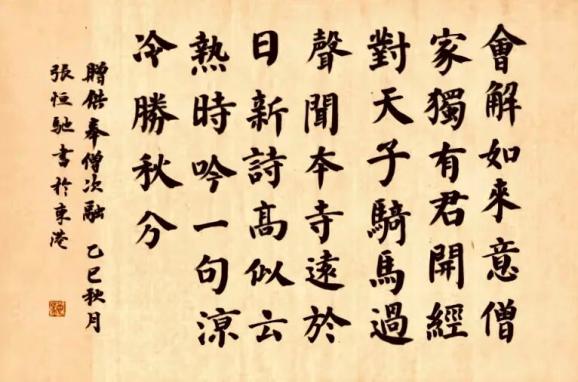 會解如來意僧
家獨有君開經
對天子騎馬過
聲聞本寺遠於
日新詩高似云
熱時吟一句涼
冷勝秋分
贈供奉僧次融 乙巳秋月
張恒馳書於東港